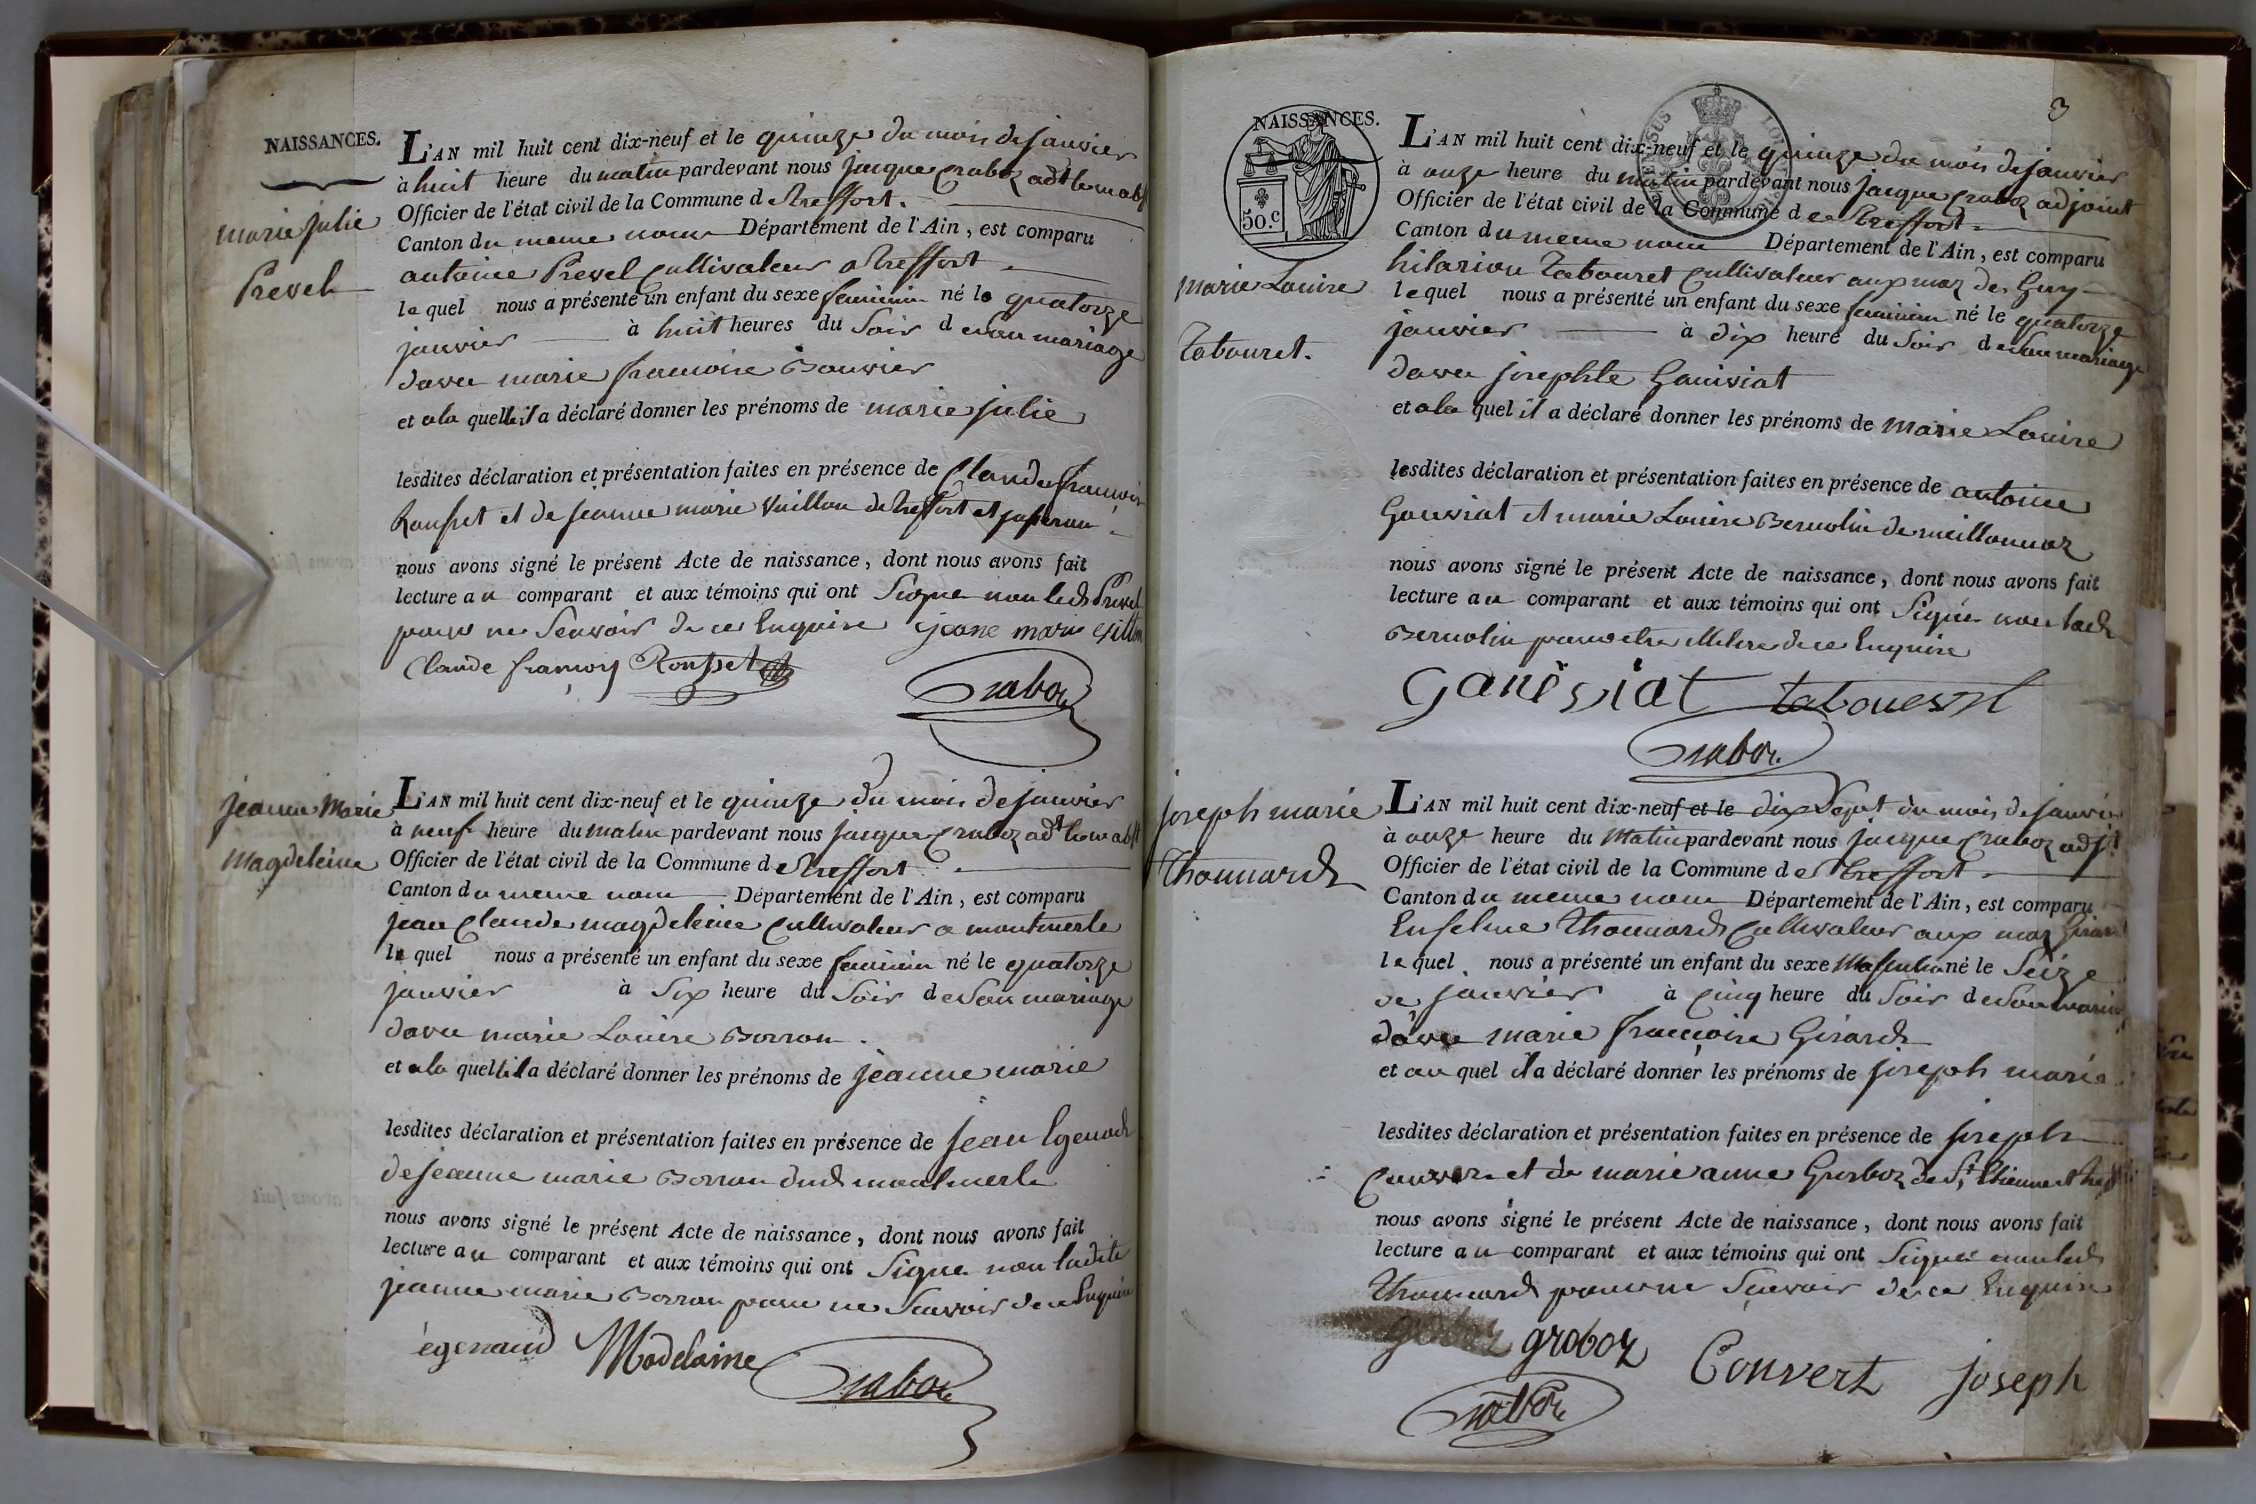 NAISSANCES.
marie julie
Prevel
L'AN mil huit cent dix-neuf et le quinze du mois de janvier
à huit heure du matin pardevant nous jacque Craboz adt
Officier de l'état civil de la Commune de treffort.
Canton du meme nom Département de l'Ain, est comparu
antoine Prevel Cultivateur a treffort
le quel nous a présenté un enfant du sexe feminin né le quatorze
janvier à huit heures du Soir de Son mariage
davec marie francoise Bouvier
et a la quelle il a déclaré donner les prénoms de marie julie
lesdites déclaration et présentation faites en présence de Claude francois
Rousset et de jeanne marie Vuillon de treffort et jasseron
nous avons signé le présent Acte de naissance, dont nous avons fait
lecture au comparant et aux témoins qui ont Signe non led Prevel
pour ne Scavoir de ce Enquire jeane marie
Claude francoy Rousset
Craboz
jeanne Marie
Magdeleine
L'AN mil huit cent dix-neuf et le quinze du mois de janvier
à neuf heure du matin pardevant nous jacque Craboz adt
Officier de l'état civil de la Commune de treffort
Canton du meme nom Département de l'Ain, est comparu
jean Claude magdeleine Cultivateur a montmerle
le quel nous a présenté un enfant du sexe feminin né le quatorze
janvier à Six heure du Soir de Son mariage
davec marie Louise Borron
et a la quelle il a déclaré donner les prénoms de jeanne marie
lesdites déclaration et présentation faites en présence de jean Egenod
de jeanne marie Borron dud montmerle
nous avons signé le présent Acte de naissance, dont nous avons fait
lecture au comparant et aux témoins qui ont Signe non ladite
jeanne marie Borron pour ne Scavoir de ce Enquire
égenaud Madelaine
Craboz
3
NAISSANCES.
50.c
marie Louise
Tabouret.
L'AN mil huit cent dix-neuf et le quinze du mois de janvier
à onze heure du matin pardevant nous jacque Craboz adjoint
Officier de l'état civil de la Commune de treffort
Canton du meme nom Département de l'Ain, est comparu
hilarion Tabouret Cultivateur aux maz de Guy
le quel nous a présenté un enfant du sexe feminin né le quatorze
janvier à dix heure du Soir de Son mariage
davec josephte Ganiviat
et a la quel il a déclaré donner les prénoms de marie Louise
lesdites déclaration et présentation faites en présence de antoine
et marie Louise Bernolin de meillonnaz
nous avons signé le présent Acte de naissance, dont nous avons fait
lecture au comparant et aux témoins qui ont Signés non lad
Bernolin pour etre illitere de ce Enquire
tabouret
Craboz
joseph marie
Thomard
L'AN mil huit cent dix-neuf et le dix Sept du mois de janvier
à onze heure du Matin pardevant nous jacque Craboz adjt
Officier de l'état civil de la Commune de treffort
Canton du meme nom Département de l'Ain, est comparu
Enselme Thomard Cultivateur aux maz Girard
le quel nous a présenté un enfant du sexe Masculin né le Seize
de janvier à Cinq heure du Soir de Son mariage
davec marie francoise Girard
et au quel il a déclaré donner les prénoms de joseph marie
lesdites déclaration et présentation faites en présence de joseph
Convers et de marie anne Grosboz de St Etienne et treffort
nous avons signé le présent Acte de naissance, dont nous avons fait
lecture au comparant et aux témoins qui ont Signés non led
Thomard pour ne Scavoir de ce Enquire
groboz Convert joseph
Craboz